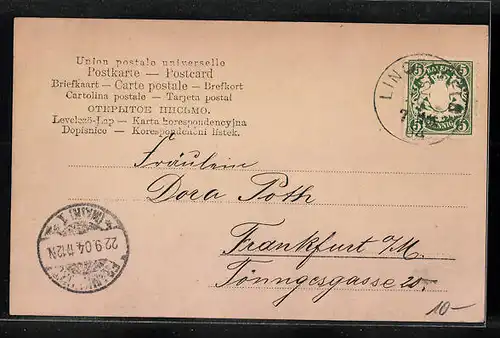 Union postale universelle
Postkarte — Postcard
Briefkaart — Carte postale — Brefkort
Cartolina postale — Tarjeta postal
ОТКРЫТОЕ ПИСЬМО.
Levelező-Lap — Karta korespondencyjna
Dopisnice — Korespondenční lístek.
LIN
5 5
5 5
Fräulein
Dora Poth
Frankfurt /M.
Töngesgasse 20.
(MAIN) 1
22.9.04.11-12N
10-